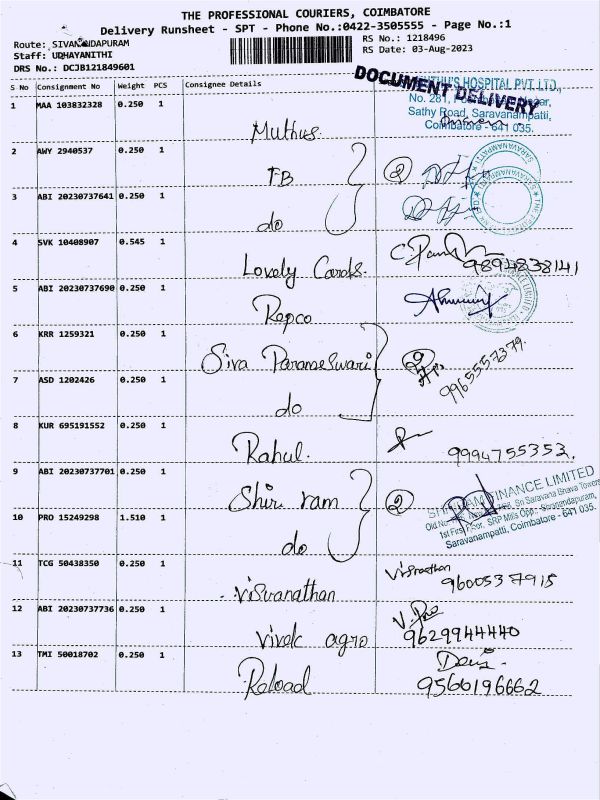 THE PROFESSIONAL COURIERS, COIMBATORE
Delivery Runsheet - SPT - Phone No.:0422-3505555 - Page No.:1
Route: SIVANANDAPURAM
RS No.: 1218496
Staff: UDHAYANITHI
RS Date: 03-Aug-2023
DRS No.: DCJB121849601
S No Consignment No Weight PCS Consignee Details
DOCUMENT DELIVERY
HOSPITAL PVT. LTD.,
No. 281,
Sathy Road, Saravanampatti,
Coimbatore - 641 035.
1 MAA 103832328 0.250 1 Muthus.
2 AWY 2940537 0.250 1 FB 2
3 ABI 20230737641 0.250 1 do
4 SVK 10408907 0.545 1 Lovely Cards. 9894838141
5 ABI 20230737690 0.250 1 Repco
6 KRR 1259321 0.250 1 Siva Parameswari 2 9965557379.
7 ASD 1202426 0.250 1 do
8 KUR 695191552 0.250 1 Rahul. 9994755353.
9 ABI 20230737701 0.250 1 Shri ram 2
FINANCE LIMITED
1st Floor, SRP Mills Opp., Sivanandapuram,
Saravanampatti, Coimbatore - 641 035.
10 PRO 15249298 1.510 1 do
11 TCG 50438350 0.250 1 Visvanathan 9600537915
12 ABI 20230737736 0.250 1 Vivek agro 9629944440
13 TMI 50018702 0.250 1 Reload 9566196662